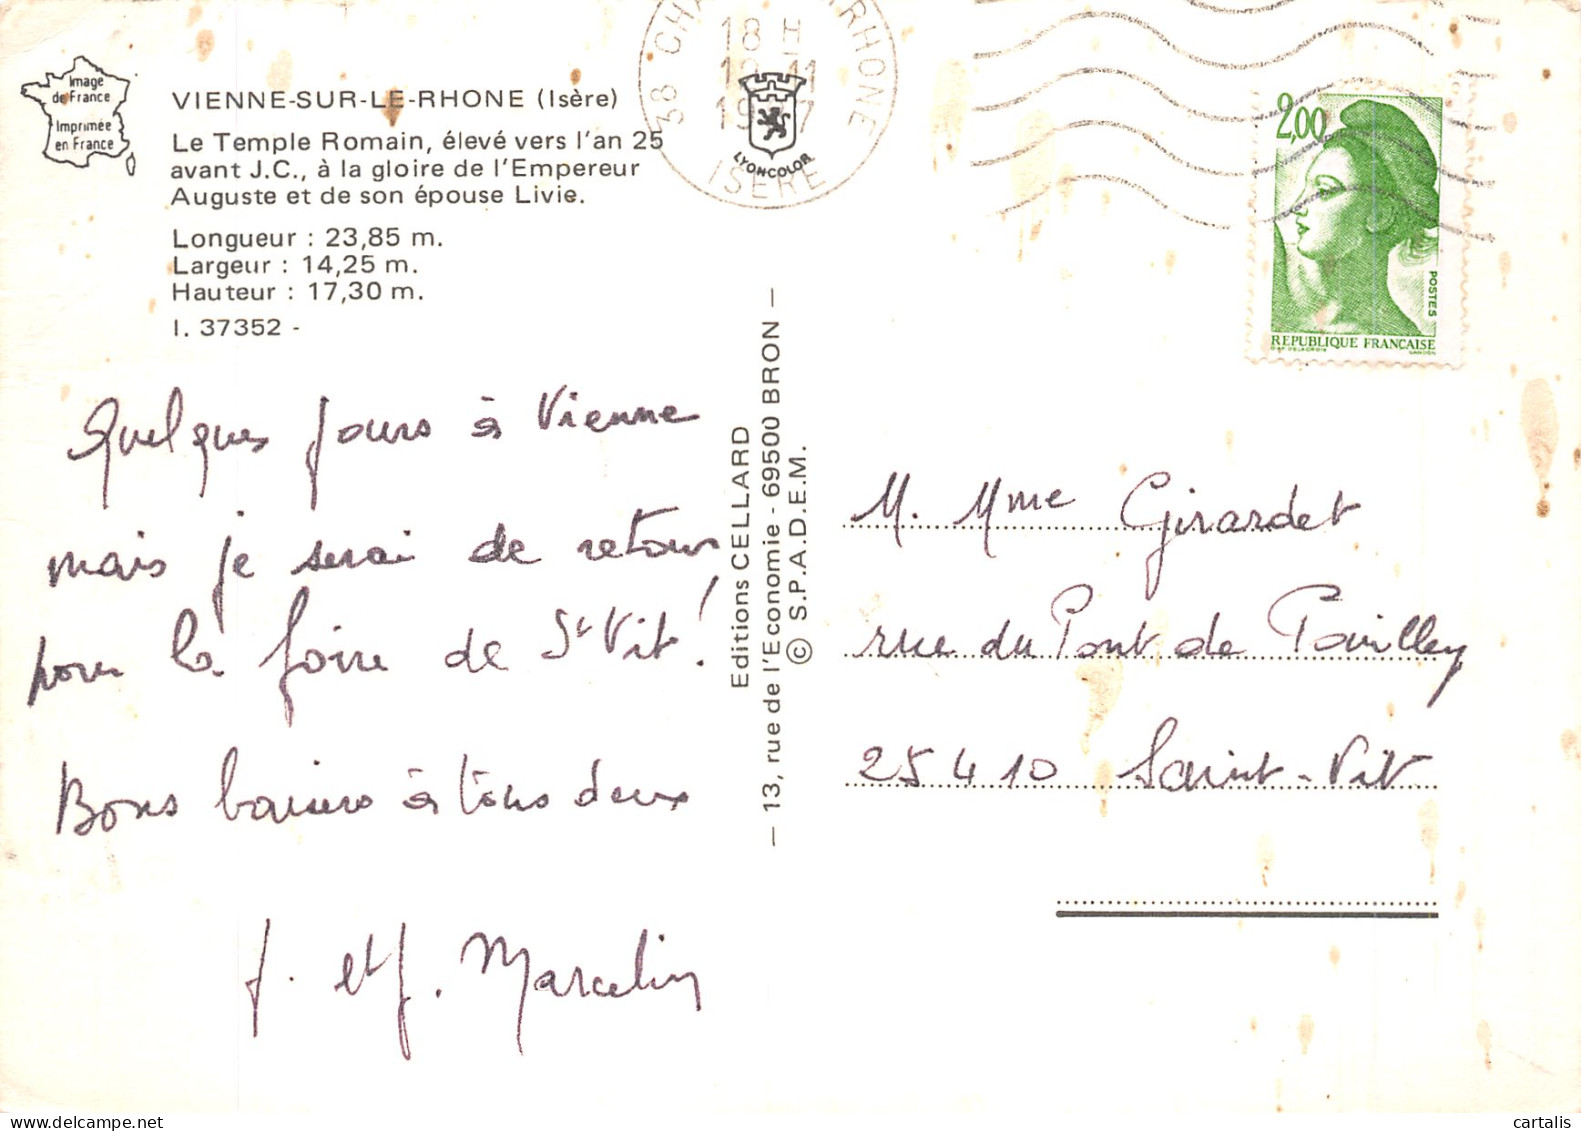 Image
de France
Imprimée
en France
VIENNE-SUR-LE-RHONE (Isère)
Le Temple Romain, élevé vers l'an 25
avant J.C., à la gloire de l'Empereur
Auguste et de son épouse Livie.
Longueur : 23,85 m.
Largeur : 14,25 m.
Hauteur : 17,30 m.
I. 37352 -
38 CHA RHONE
18 H
11
ISERE
LYONCOLOR
2,00
POSTES
REPUBLIQUE FRANÇAISE
D'AP. DELACROIX GANDON
Quelques jours à Vienne
mais je serai de retour
pour la foire de St Vit !
Bons baisers à tous deux
J. et J. Marcelin
Editions CELLARD
— 13, rue de l'Economie - 69500 BRON —
© S.P.A.D.E.M.
M. Mme Girardet
rue du Pont de Pouilley
25410 Saint-Vit
cartalis